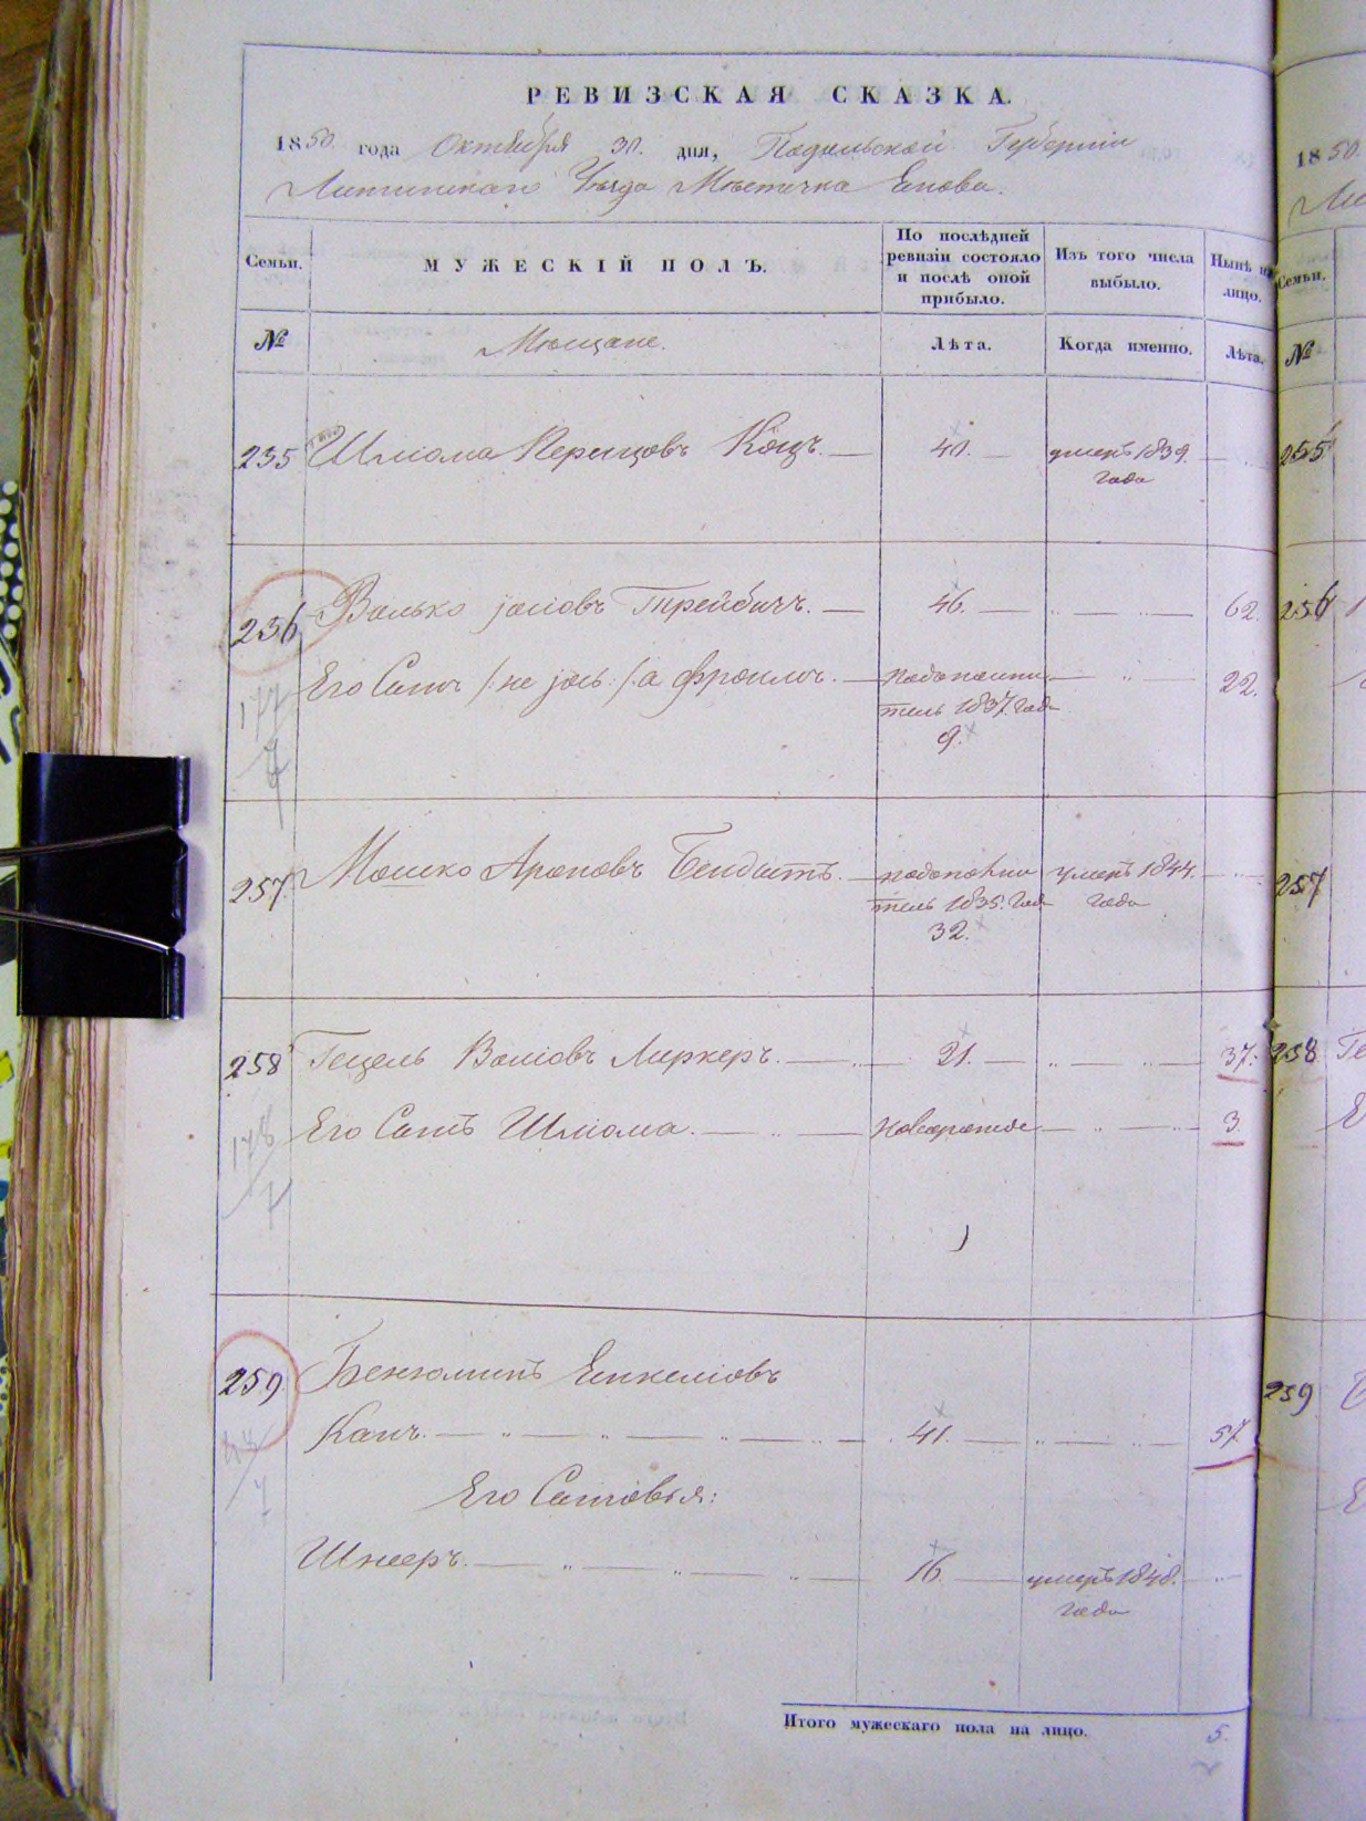 РЕВИЗСКАЯ СКАЗКА.
1850 года Октября 30. дня, Подольской Губерніи
Литинскаго Уѣзда Мѣстечка Янова.
Семьи.
МУЖЕСКІЙ ПОЛЪ.
По послѣдней ревизіи состояло и послѣ оной прибыло.
Изъ того числа выбыло.
Нынѣ на лицо.
№
Мещане.
Лѣта.
Когда именно.
Лѣта.
255 Шліома Перецовъ Кацъ. 40. умеръ 1839.
года
256 Волько Іосіовъ Трейбичъ. 46. 62.
Его Сынъ /: не Іось :/ а Фроимъ. дополни 22.
тель 1837. года
9.
177
7
257. Мошко Ароновъ Бендитъ. дополни умеръ 1844.
тель 1835. года года
32.
258 Гецель Воліовъ Лиркеръ. 21. 37.
Его Сынъ Шліома. новорожде 3
178
7
259 Беніоминъ Янкеліовъ
Кацъ. 41. 57.
Его Сыновья:
Шнееръ. 16 умеръ 1848.
года
Итого мужескаго пола на лицо. 5.
1850.
Семьи.
№
255
256
257
258 Ге
259